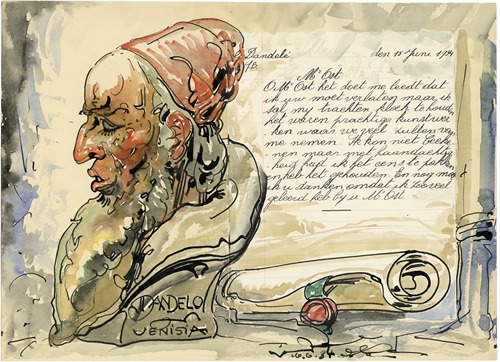 Dandelé
den 15 Juni 1984
Mr Ost
O Mr Ost het doet me leedt dat
ik uw moet verlaten maar ik
zal my trachten sterk te houd
het waren prachtige kunstwer
ken waar we veel zullen van
me nemen. Ik kon niet
nen maar met
heid heb ik het eens te pakken
en heb het gehouden. En nog maa
ik u danken omdat ik zooveel
geleerd heb by u Mr Ost
DANDELO
VENISIA